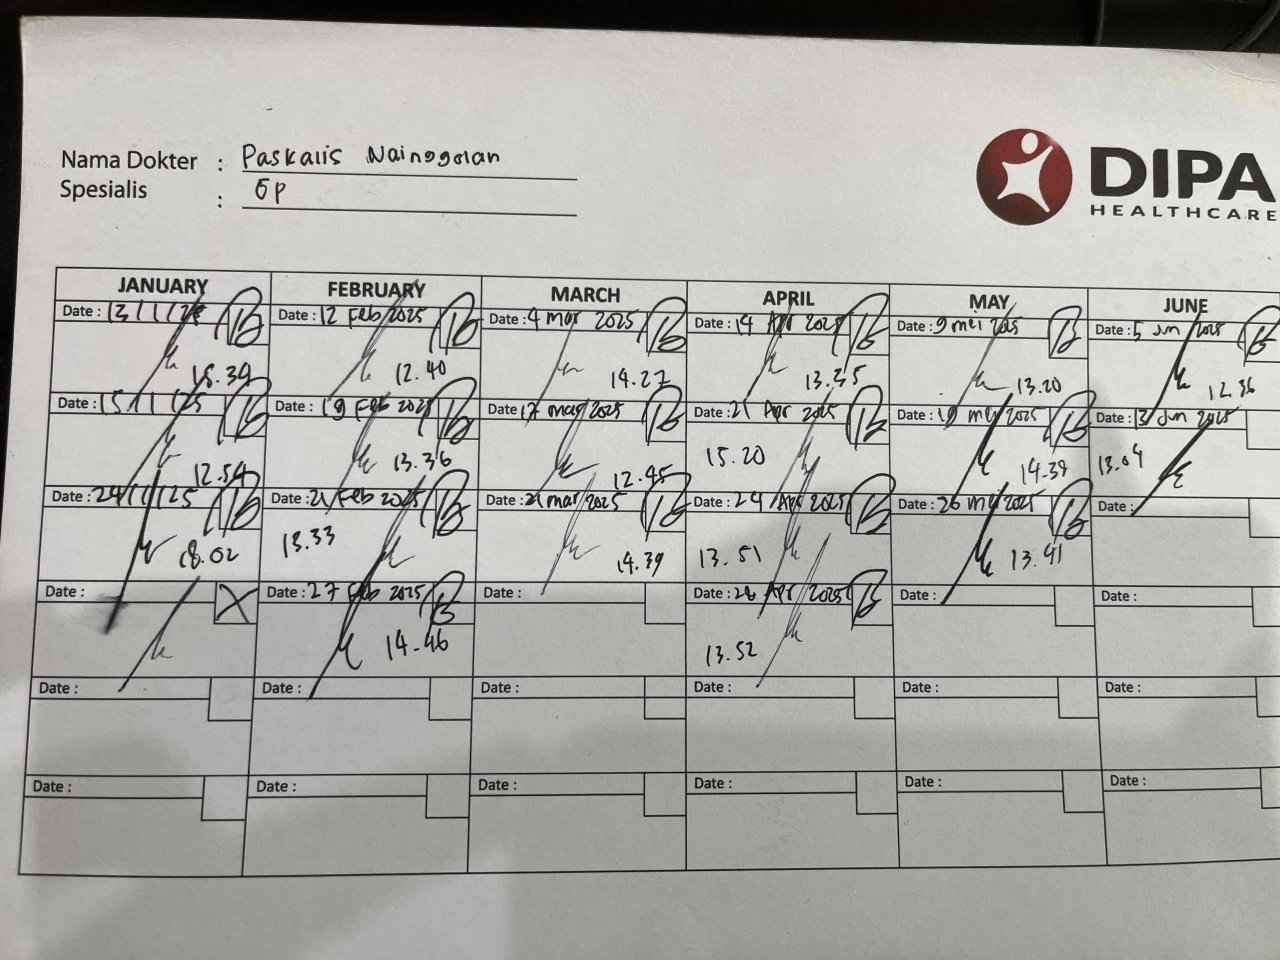 Nama Dokter : Paskalis Nainggolan
Spesialis : GP
DIPA
HEALTHCARE
JANUARY FEBRUARY MARCH APRIL MAY JUNE
Date : 13/1/25 Date : 12 Feb 2025 Date : 4 mar 2025 Date : 14 Apr 2025 Date : 9 mei 2025 Date : 5 Jun 2025
12.40 14.27 13.35 13.20 12.36
Date : 15/1/25 Date : 19 Feb 2025 Date : 17 mar 2025 Date : 21 Apr 2025 Date : 19 mei 2025 Date : 13 Jun 2025
12.54 13.36 12.45 15.20 14.39 13.04
Date : 24/1/25 Date : 21 Feb 2025 Date : 21 mar 2025 Date : 24 Apr 2025 Date : 26 mei 2025 Date :
18.02 13.33 14.39 13.51 13.41
Date : Date : 27 Feb 2025 Date : Date : 28 Apr 2025 Date : Date :
14.46 13.52
Date : Date : Date : Date : Date : Date :
Date : Date : Date : Date : Date : Date :